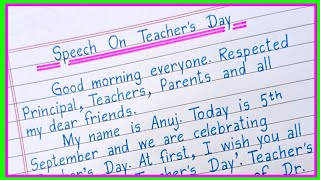 Speech On Teacher's Day
Good morning everyone. Respected
Principal, Teachers, Parents and all
my dear friends.
My name is Anuj. Today is 5th
September and we are celebrating
Teacher's Day. At first, I wish you all
Teacher's Day'. Teacher's
of Dr.